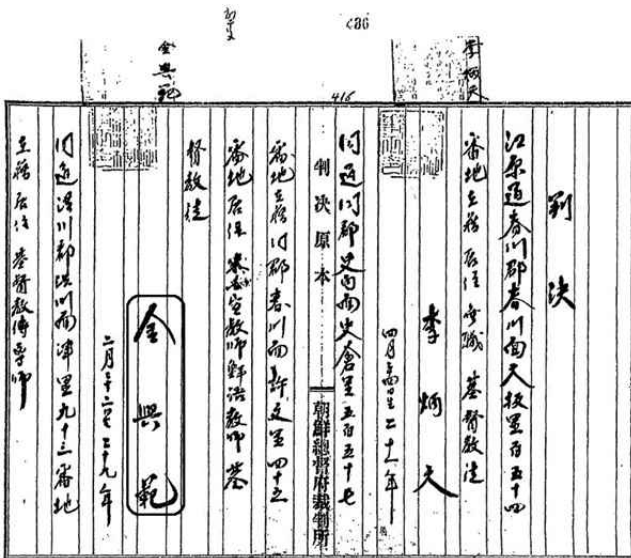 486
李炳天
金興範
416
判決
江原道春川郡春川面大板里百五十四
番地在籍居住 無職 基督教徒
李炳天
四月 日生二十一年
同道同郡史內面史倉里五百五十七
判決原本
朝鮮總督府裁判所
番地在籍同郡春川面許文里四十五
番地居住 宣教師鮮語教師基
督教徒
金興範
二月二十二日生二十九年
同道洪川郡洪川面 里九十三番地
在籍居住 基督教傳導師